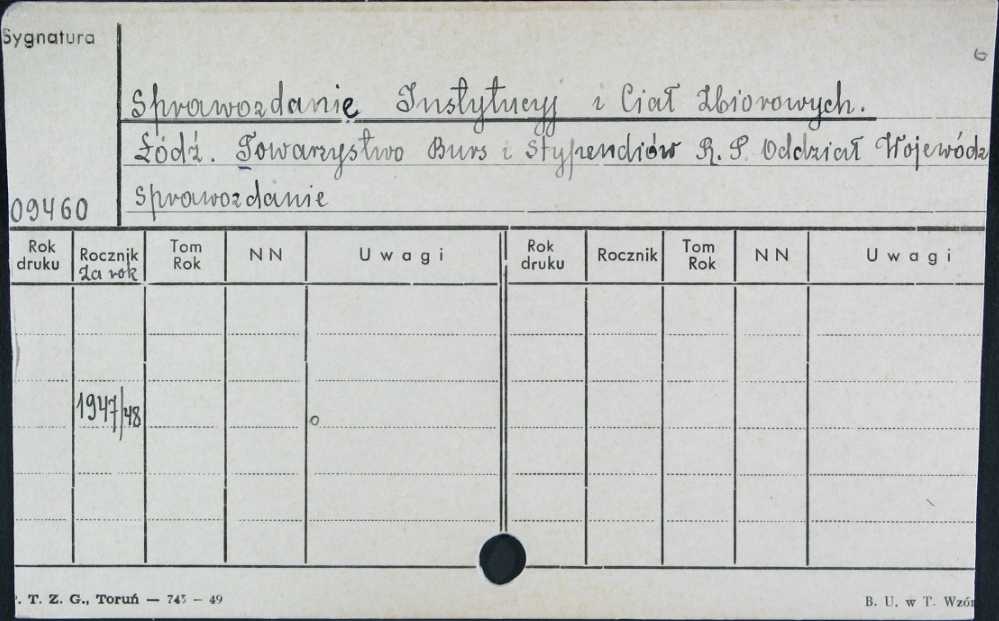 Sygnatura
6
Sprawozdanie Instytucyj i Ciał Zbiorowych.
Łódź. Towarzystwo Burs i Stypendiów R. P. Oddział Wojewódz
Sprawozdanie
09460
Rok druku Rocznik Za rok Tom Rok NN Uwagi Rok druku Rocznik Tom Rok NN Uwagi
1947/48 o
. T. Z. G., Toruń — 745 – 49
B. U. w T. Wzór